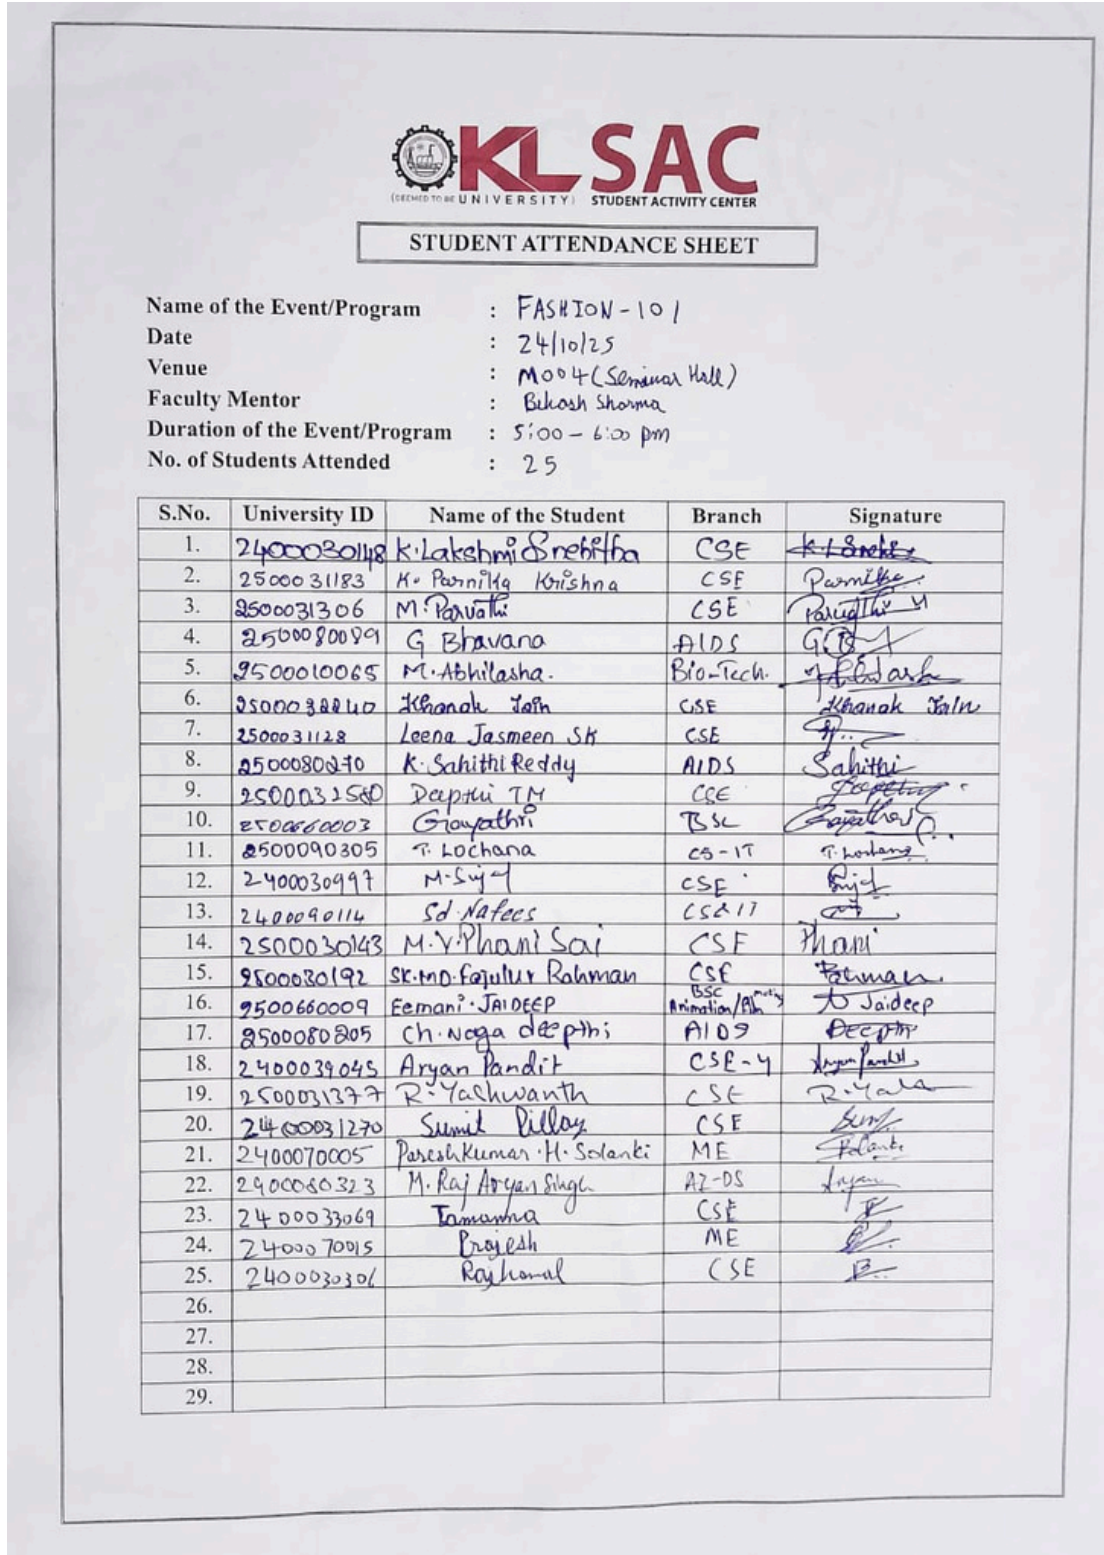 KL SAC
(DEEMED TO BE UNIVERSITY) STUDENT ACTIVITY CENTER
STUDENT ATTENDANCE SHEET
Name of the Event/Program : FASHION-101
Date : 24/10/25
Venue : M004 (Seminar Hall)
Faculty Mentor : Bikash Sharma
Duration of the Event/Program : 5:00 - 6:00 pm
No. of Students Attended : 25
S.No. University ID Name of the Student Branch Signature
1. 2400030148 K.Lakshmi Snehitha CSE
2. 2500031183 K. Parnika Krishna CSE Parnika
3. 2500031306 M. Parvathi CSE Parvathi M
4. 2500080089 G Bhavana AIDS
5. 2500010065 M.Abhilasha. Bio-Tech.
6. 2500032240 Khanak Jain CSE Khanak Jain
7. 2500031128 Leena Jasmeen SK CSE
8. 2500080270 K. Sahithi Reddy AIDS Sahithi
9. Deepthi TM CSE
10. 2500660003 Gayathri BSC
11. 2500090305 T. Lochana CS-IT T. Lochana
12. 2400030997 CSE
13. 2400090114 Sd. Nafees CS&IT
14. 2500030143 M.V.Phani Sai CSE Phani
15. 2500030192 SK.MD.Fajulur Rahman CSE Rahman
16. 2500660009 Eemani. JAIDEEP BSC Animation/ Jaideep
17. 2500080205 Ch. Naga deepthi AIDS DEEPTHI
18. 2400039045 Aryan Pandit CSE-4 Aryan Pandit
19. 2500031377 R. Yashwanth CSE
20. 2400031270 Sumit Pillay CSE
21. 2400070005 Paresh Kumar.H. Solanki ME Solanki
22. 2400080323 M. Raj Aryan Singh AI-DS Aryan
23. 2400033069 Tamanna CSE
24. 2400070015 Brajesh ME
25. 2400030306 Rajkamal CSE
26.
27.
28.
29.